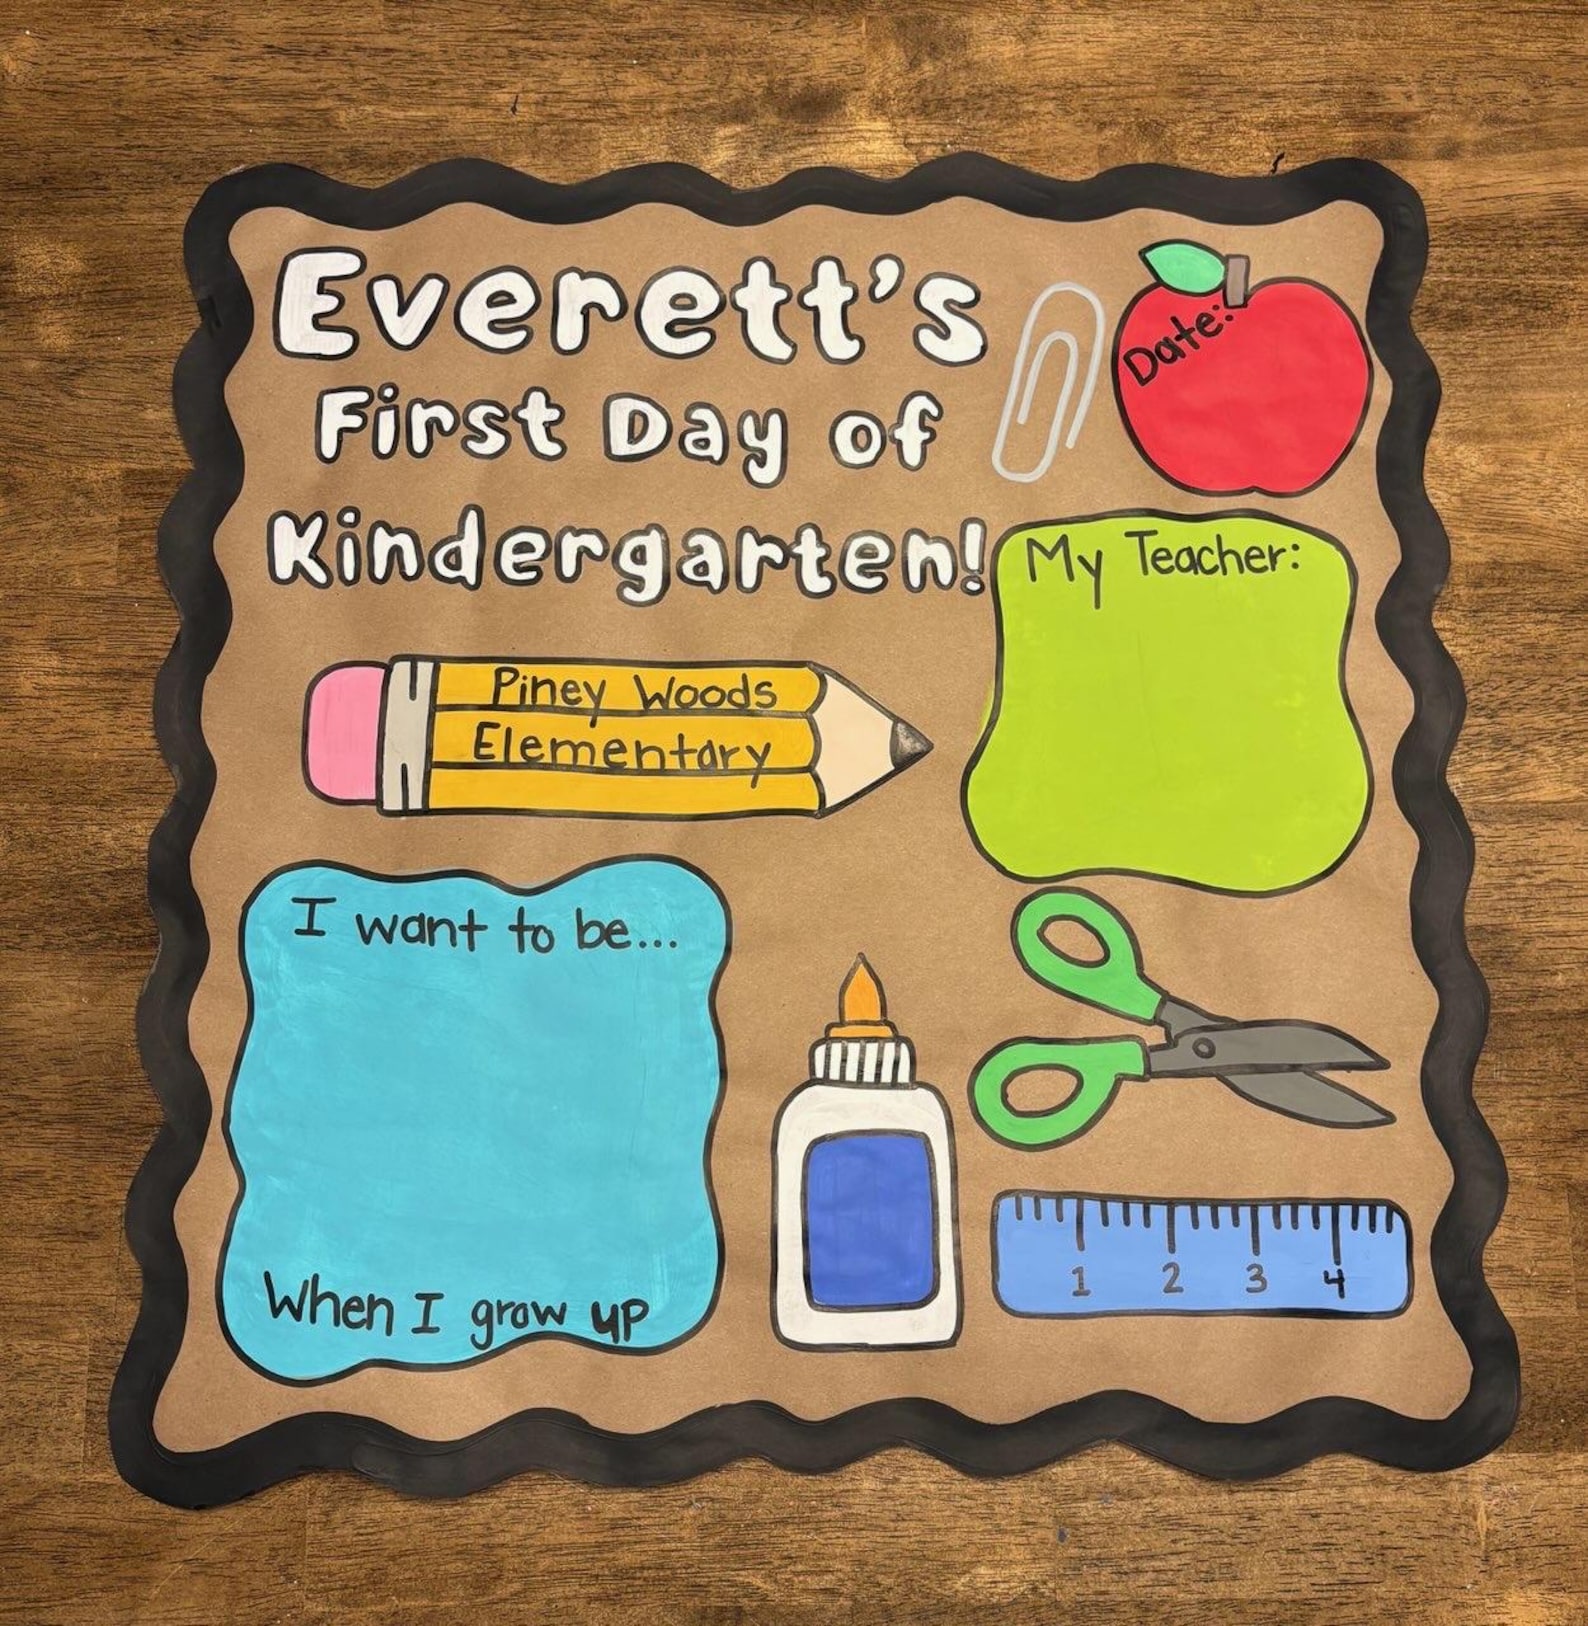 Everett's
First Day of
Kindergarten!
Date:
My Teacher:
Piney Woods
Elementary
I want to be...
When I grow up
1 2 3 4